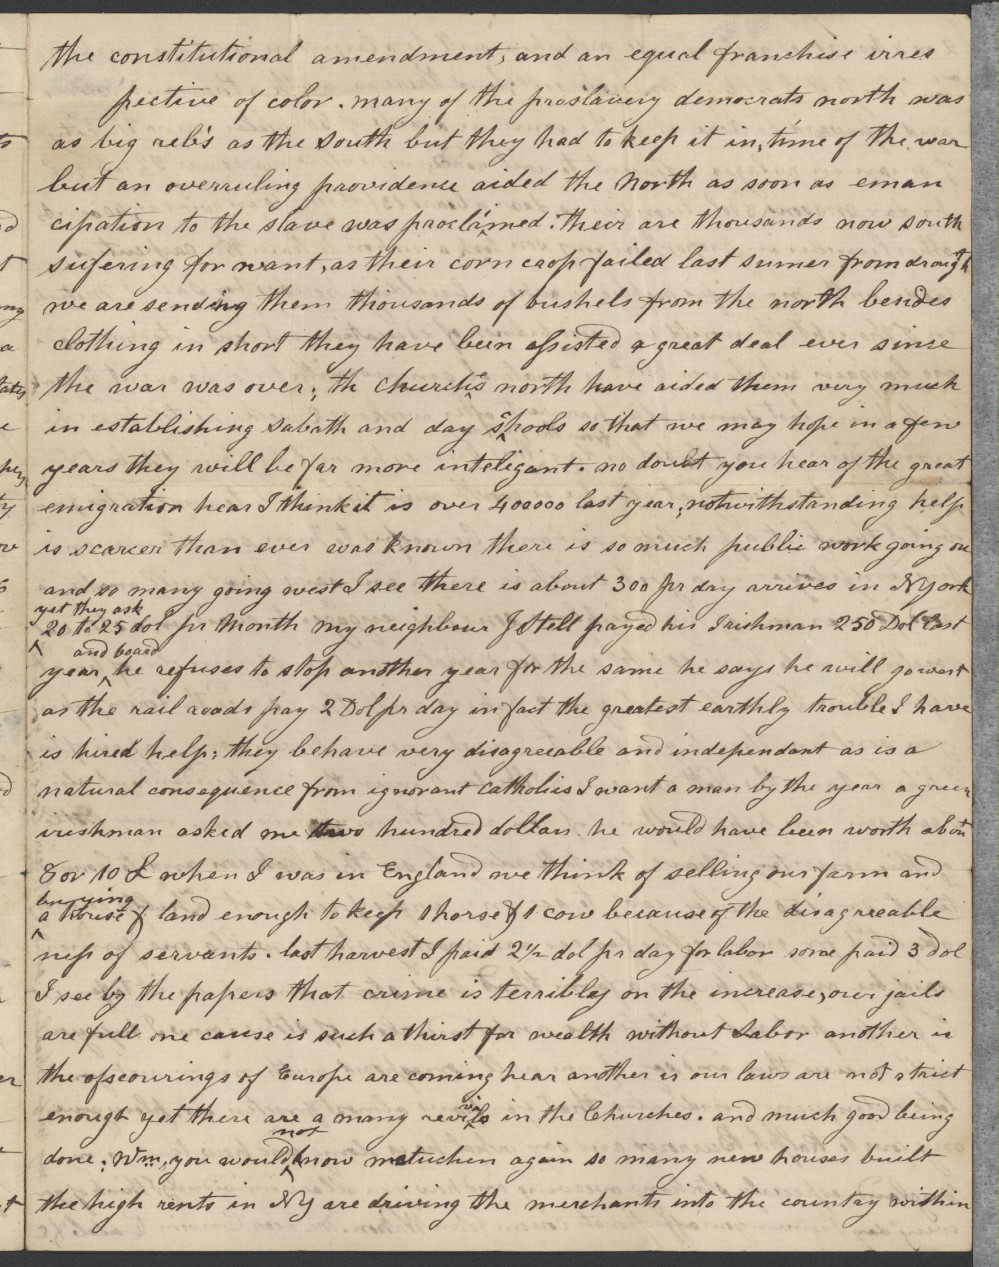 the constitutional amendment, and an equal franchise irres
pective of color. many of the proslavery democrats north was
as big reb's as the South but they had to keep it in, time of the war
but an overruling providence aided the North as soon as eman
cipation to the slave was proclaimed. their are thousands now south
sufering for want, as their corn crop failed last sumer from drougth
we are sending them thousands of bushels from the north besides
clothing in short they have been assisted a great deal ever since
the war was over; th churchs north have aided them very much
in establishing sabath and day schools so that we may hope in a few
years they will be far more inteligant. no doubt you hear of the great
emigration hear I think it is over 400000 last year, notwithstanding help
is scarcer than ever was known there is so much public work going on
and so many going west I see there is about 300 pr day arrives in N York
yet they ask
20 to 25 dol pr Month my neighbour J Stell payed his Irishman 250 Dol last
and board
year, he refuses to stop another year for the same he says he will go west
as the rail roads pay 2 Dol pr day in fact the greatest earthly trouble I have
is hired help; they behave very disagreeable and independant as is a
natural consequence from ignorant catholics I want a man by the year a green
irishman asked me two hundred dollars he would have been worth about
8 or 10 £ when I was in England we think of selling our farm and
buying
a house & land enough to keep 1 horse & 1 cow because of the disagreeable
ness of servants. last harvest I paid 2½ dol pr day for labor some paid 3 dol
I see by the papers that crime is terribley on the increase, our jails
are full one cause is such a thirst for wealth without Labor another is
the ofscourings of Europe are coming hear another is our laws are not strict
enough yet there are a many revivals in the Churches. and much good being
not
done; Wm, you would know metuchen again so many new houses built
the high rents in NY are driving the merchants into the country within